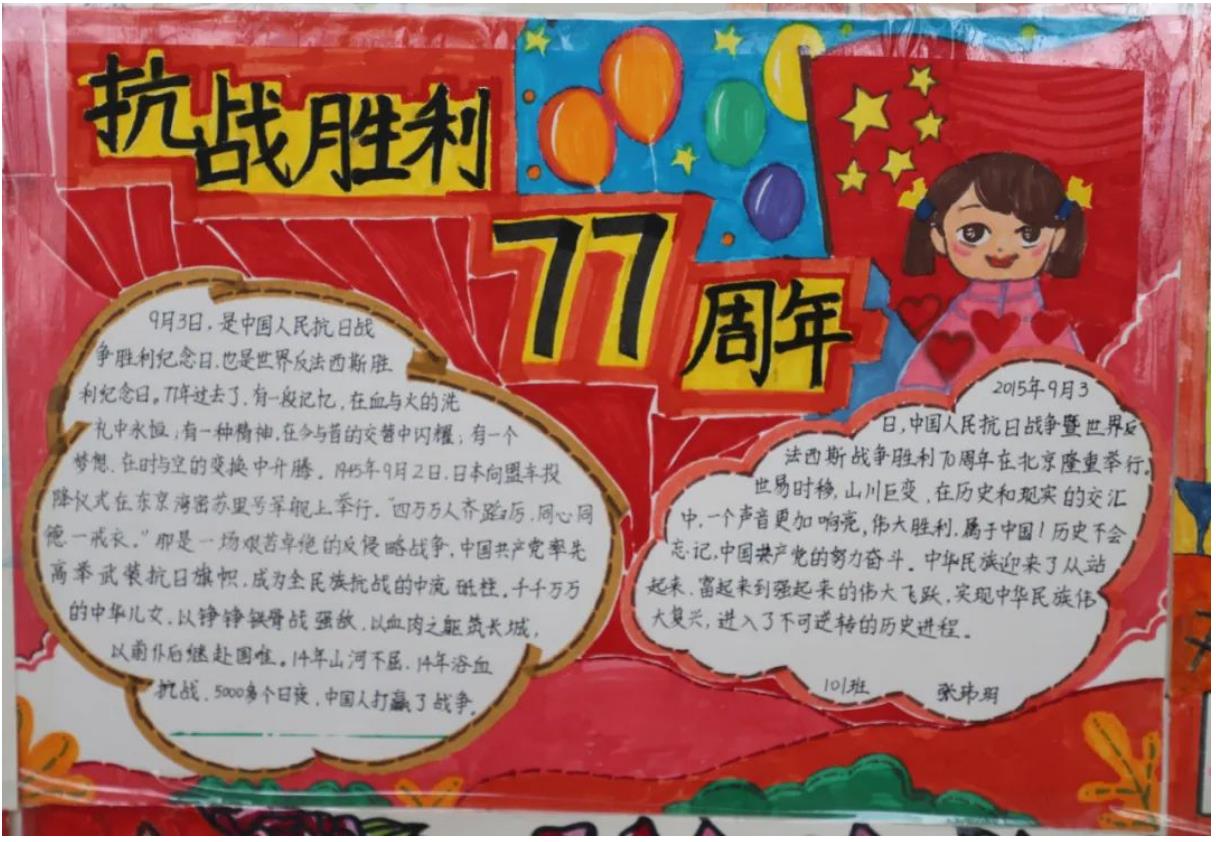 抗战胜利
77
周年
9月3日,是中国人民抗日战
争胜利纪念日,也是世界反法西斯胜
利纪念日。77年过去了,有一段记忆,在血与火的洗
礼中永恒;有一种精神,在今与昔的交替中闪耀;有一个
梦想,在时与空的变换中升腾。1945年9月2日,日本向盟军投
降仪式在东京湾密苏里号军舰上举行。“四万万人齐蹈厉,同心同
德一戎衣。”那是一场艰苦卓绝的反侵略战争,中国共产党率先
高举武装抗日旗帜,成为全民族抗战的中流砥柱。千千万万
的中华儿女,以铮铮铁骨战强敌,以血肉之躯筑长城,
以前仆后继赴国难。14年山河不屈,14年浴血
抗战,5000多个日夜,中国人打赢了战争。
2015年9月3
日,中国人民抗日战争暨世界反
法西斯战争胜利70周年在北京隆重举行。
世易时移,山川巨变,在历史和现实的交汇
中,一个声音更加响亮,伟大胜利,属于中国!历史不会
忘记,中国共产党的努力奋斗。中华民族迎来了从站
起来、富起来到强起来的伟大飞跃,实现中华民族伟
大复兴,进入了不可逆转的历史进程。
101班 张玮玥